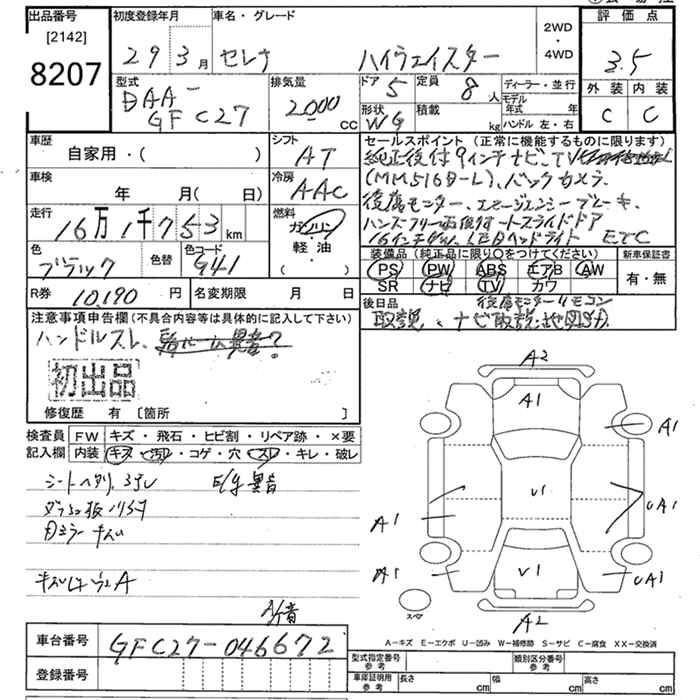 出品番号
[2142]
8207
初度登録年月
29 3月
車名・グレード
セレナ ハイウェイスター
2WD
・
4WD
評価点
3.5
外装 内装
C C
型式
DAA-
GFC27
排気量
2000 CC
ドア 5
定員 8人
形状 WG
積載 kg
ディーラー・並行
モデル年式 年
ハンドル 左・右
車歴
自家用・( )
シフト
AT
車検
年 月( 日)
冷房
AAC
走行
16万1千753km
燃料
ガソリン
軽・油
色
ブラック
色替
色コード
G41
R券 10,190 円
名変期限 月 日
セールスポイント (正常に機能するものに限ります)
純正後付9インチナビ、TV
(MM516D-L)、バックカメラ、
後席モニター、エマージェンシーブレーキ、
ハンズフリー両後付オートスライドドア
16インチ LEDヘッドライト ETC
装備品(純正品に限り〇をつけてください)
PS PW ABS エアB AW
SR ナビ TV カワ
新車保証書
有・無
後日品
後席モニターリモコン
取説、ナビ取説、地図SD
注意事項申告欄(不具合内容等は具体的に記入して下さい)
ハンドルスレ、
初出品
修復歴 有 〔箇所 〕
検査員 FW キズ・飛石・ヒビ割・リペア跡・×要
記入欄 内装 キズ・汚レ・コゲ・穴・スレ・キレ・破レ
シートヘタリ、スレ E/g異音
内ミラー キズ
A2
A1
A1
A1
U1
UA1
A1
U1
UA1
スペア
A2
A－キズ E－エクボ U－凹み W－補修跡 S－サビ C－腐食 XX－交換済
車台番号 GFC27-046672
登録番号
型式指定番号 参考
類別区分番号 参考
車庫証明用 参考
長さ cm
幅 cm
高さ cm